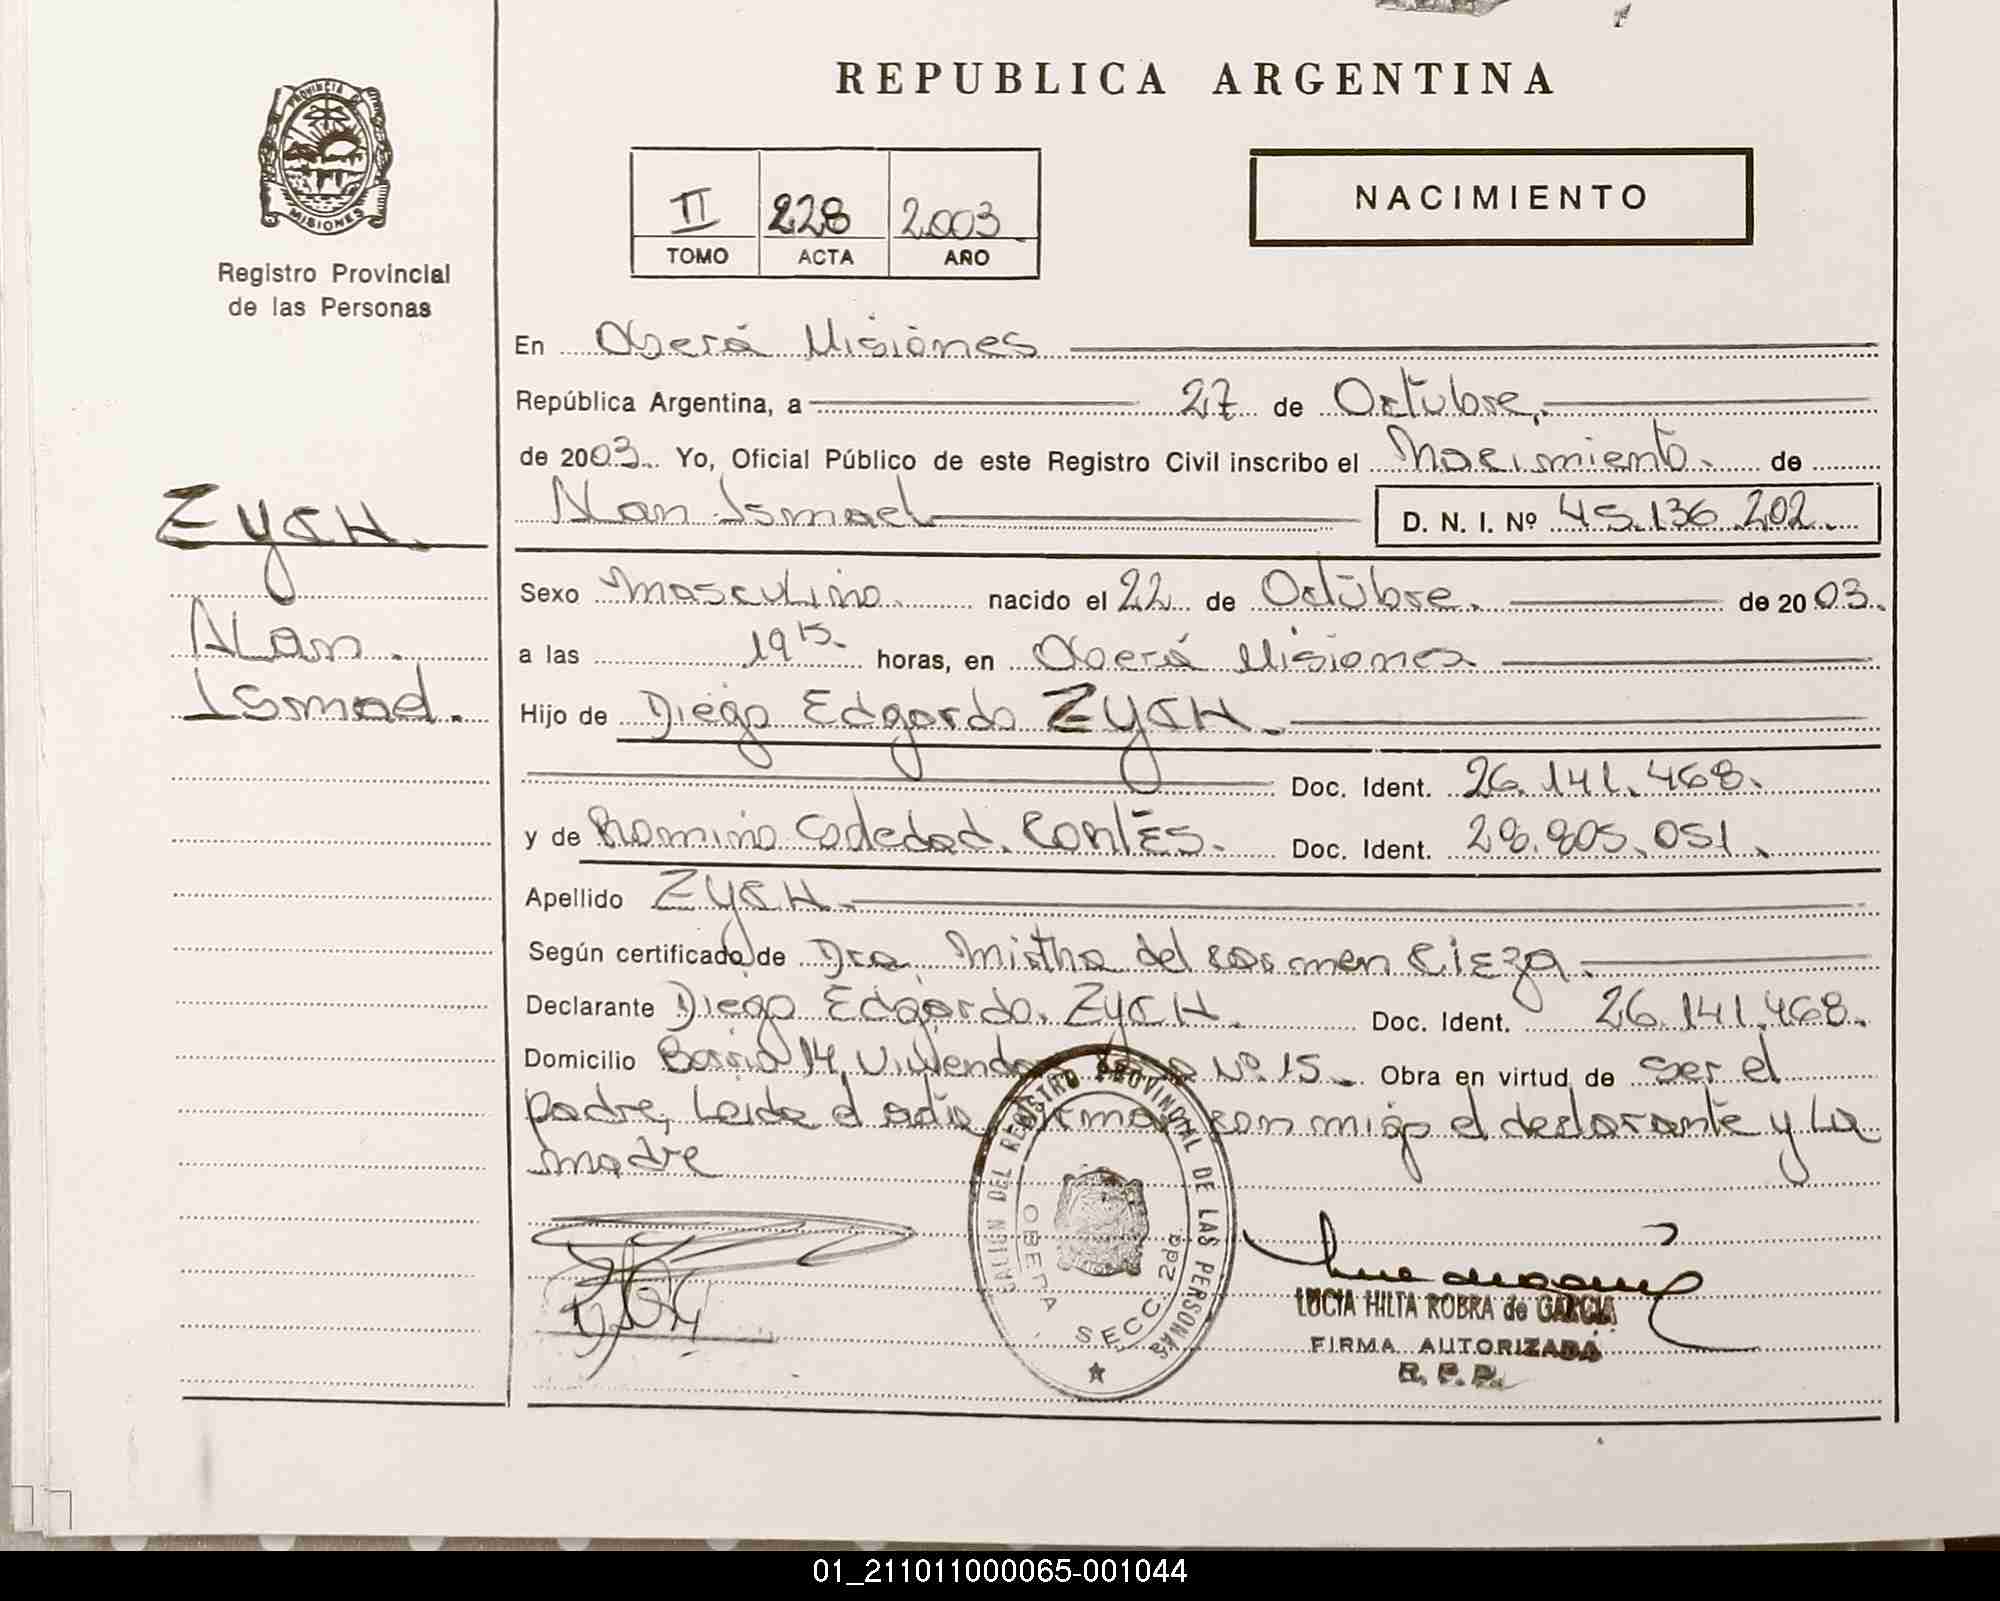 REPUBLICA ARGENTINA
PROVINCIA DE
MISIONES
Registro Provincial
de las Personas
II 228 2.003
TOMO ACTA AÑO
NACIMIENTO
En Oberá Misiones
República Argentina, a 27 de Octubre,
de 2003. Yo, Oficial Público de este Registro Civil inscribo el Nacimiento. de
Alan Ismael D. N. I. Nº 45.136.202.
ZYCH.
Alan.
Ismael.
Sexo masculino. nacido el 22 de Octubre. de 2003.
a las 19 15. horas, en Oberá Misiones
Hijo de Diego Edgardo ZYCH.
Doc. Ident. 26.141.468.
y de Romina Soledad. CORTÉS. Doc. Ident. 28.805.051.
Apellido ZYCH.
Según certificado de Dra. Mirtha del Carmen Cieza.
Declarante Diego Edgardo. ZYCH. Doc. Ident. 26.141.468.
Domicilio Barrio 14 Viviendas Nº 15. Obra en virtud de ser el
padre, Leida el acta firman conmigo el declarante y La
madre
DEL REGISTRO PROVINCIAL DE LAS PERSONAS
OBERA SECC. 2da.
LUCIA HILTA ROBRA de GARCIA
FIRMA AUTORIZADA
R. P. P.
01_211011000065-001044